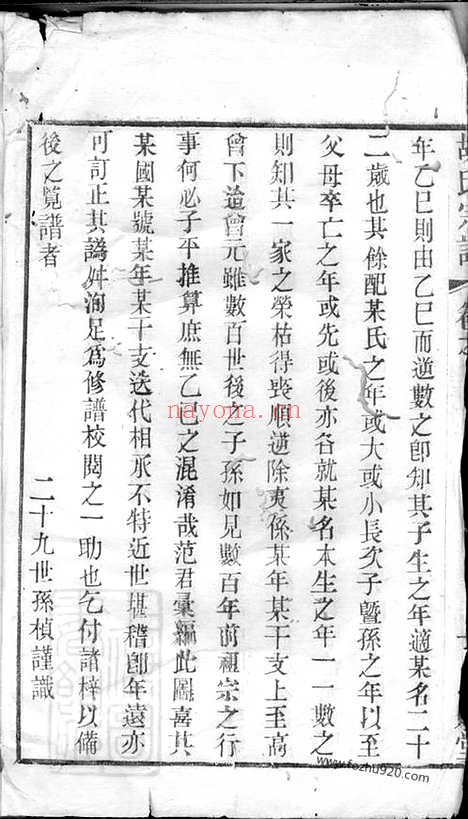 年乙巳則由乙巳而逆數之卽知其子生之年適某名二十
二歲也其餘配某氏之年或大或小長次子曁孫之年以至
父母卒亡之年或先或後亦各就某名本生之年一一數之
則知其一家之榮枯得喪順逆除夷係某年某干支上至高
曾下迨曾元雖數百世後之子孫如見數百年前祖宗之行
事何必子平推算庶無乙巳之混淆哉范君彙編此圖喜其
某國某號某年某干支迭代相承不特近世堪稽卽年遠亦
可訂止其譌舛洵足爲修譜校閱之一助也乞付諸梓以備
後之覽譜者
二十九世孫楨謹識
nayona.cn
www.fozhu920.com